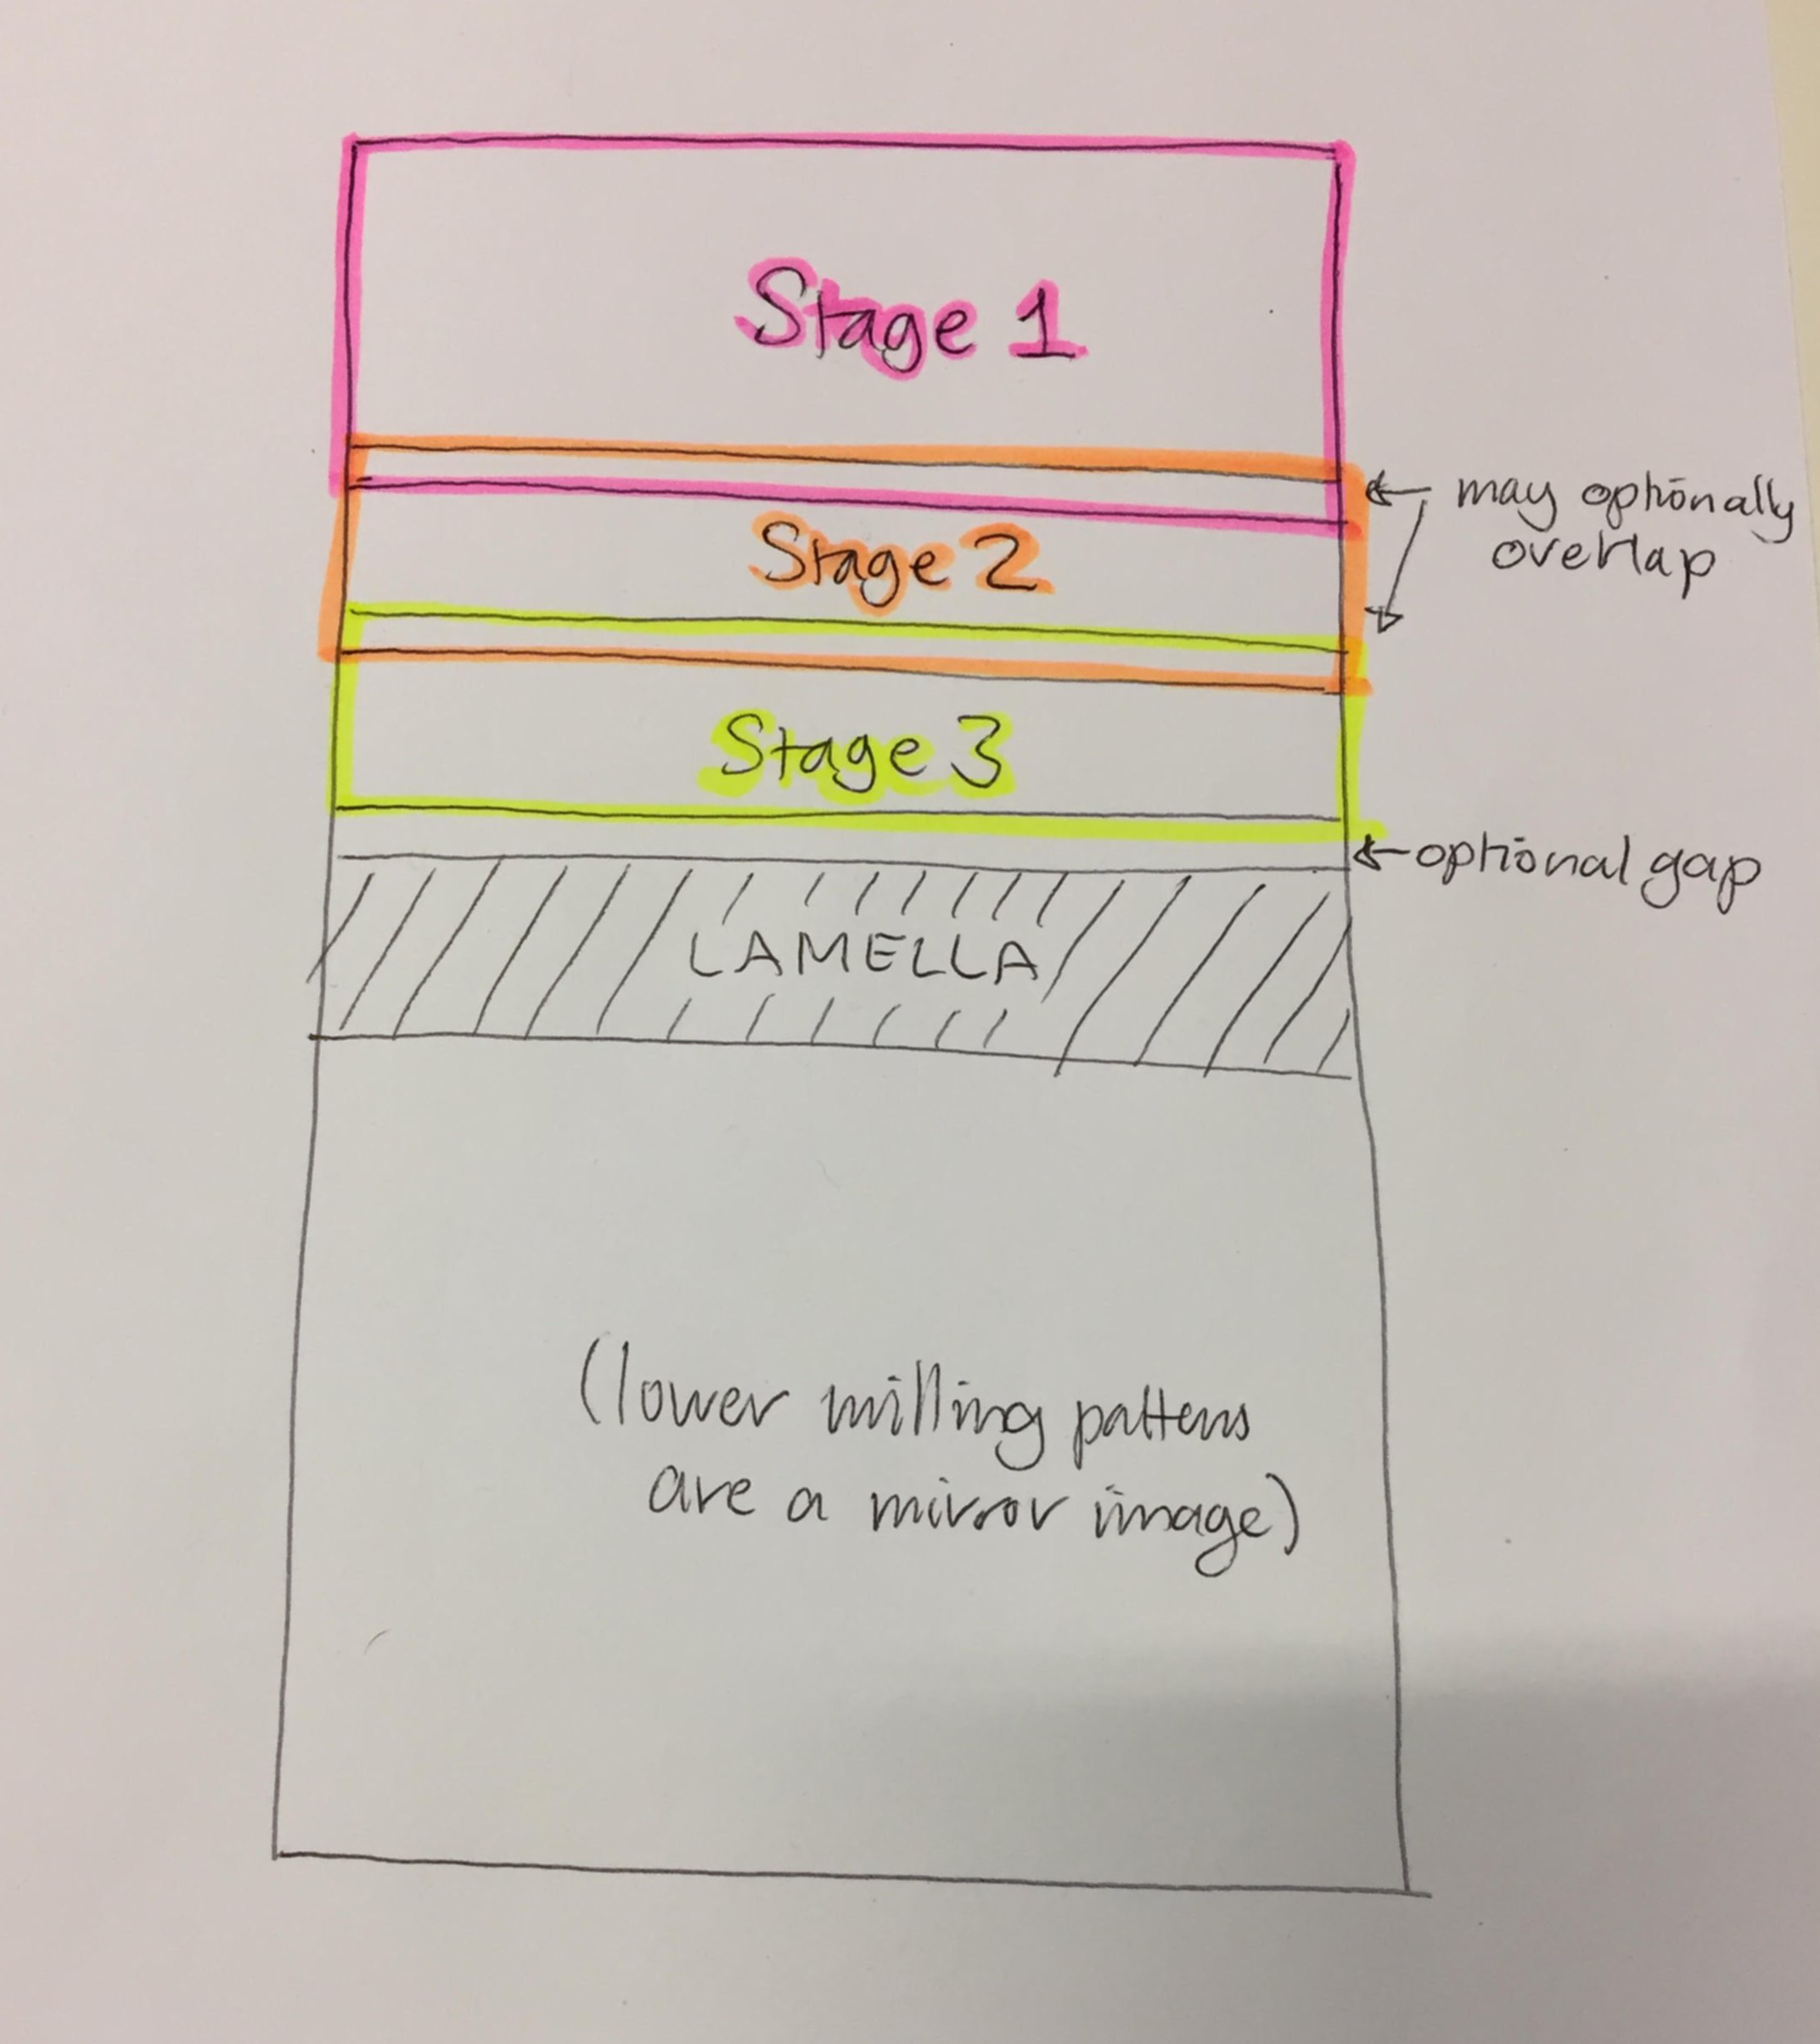 Stage 1
may optionally
overlap
Stage 2
Stage 3
optional gap
LAMELLA
(lower milling pattens
are a mirror image)